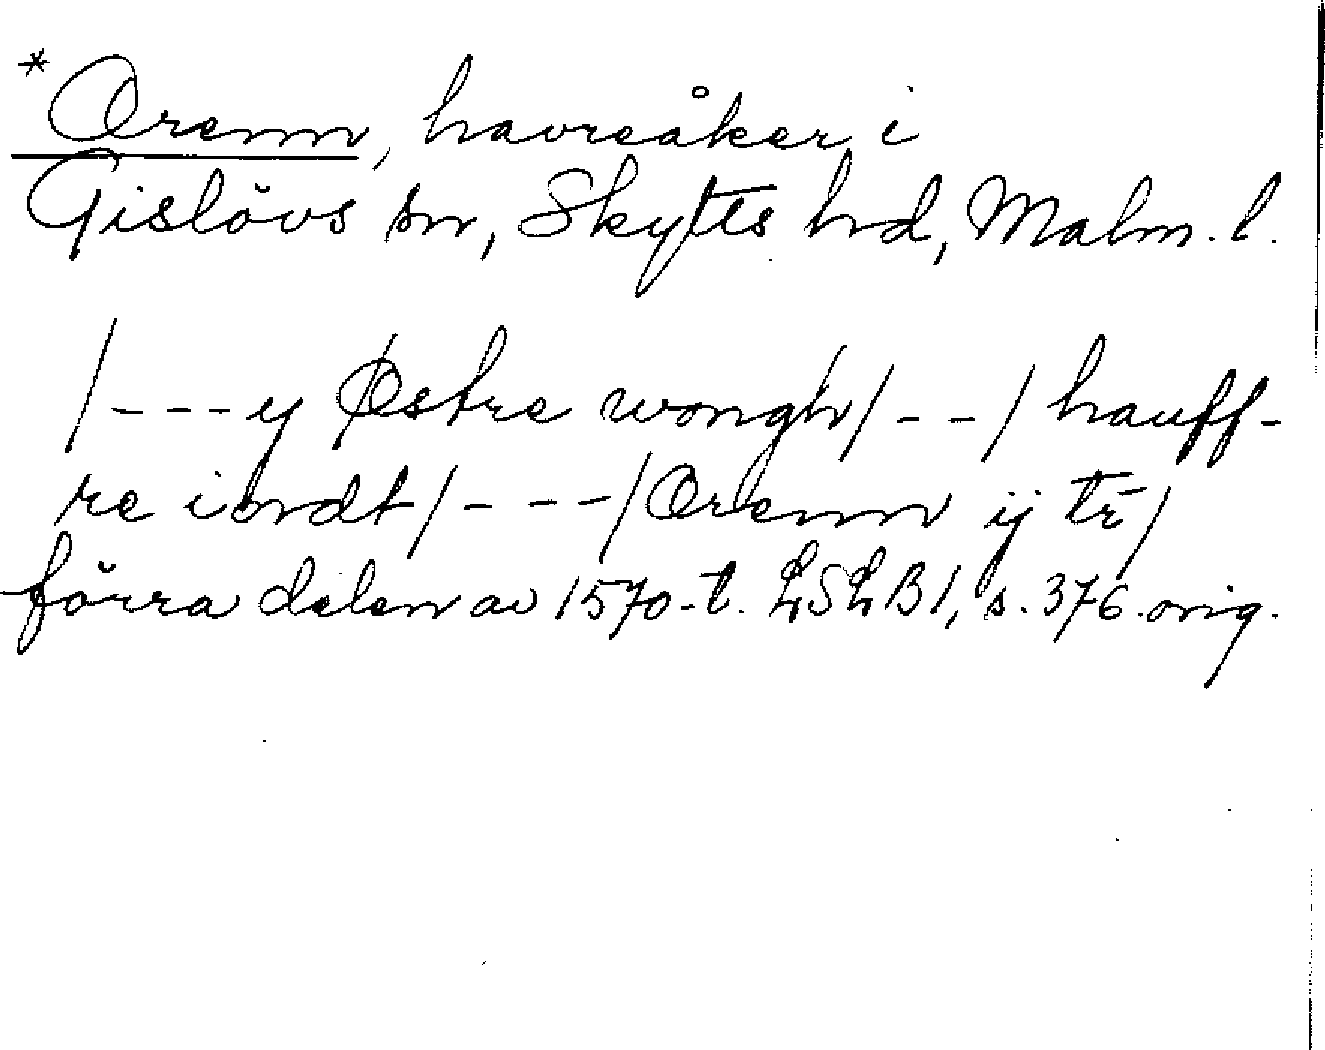 *Orenn, havreåker i
Gislövs sn, Skytts hd, Malm. l.
/---y Østre wongh/--/ hauff-
re iordt/---/Orenn ij tr̄/
förra delen av 1570-t. LSLB1, s. 376. orig.